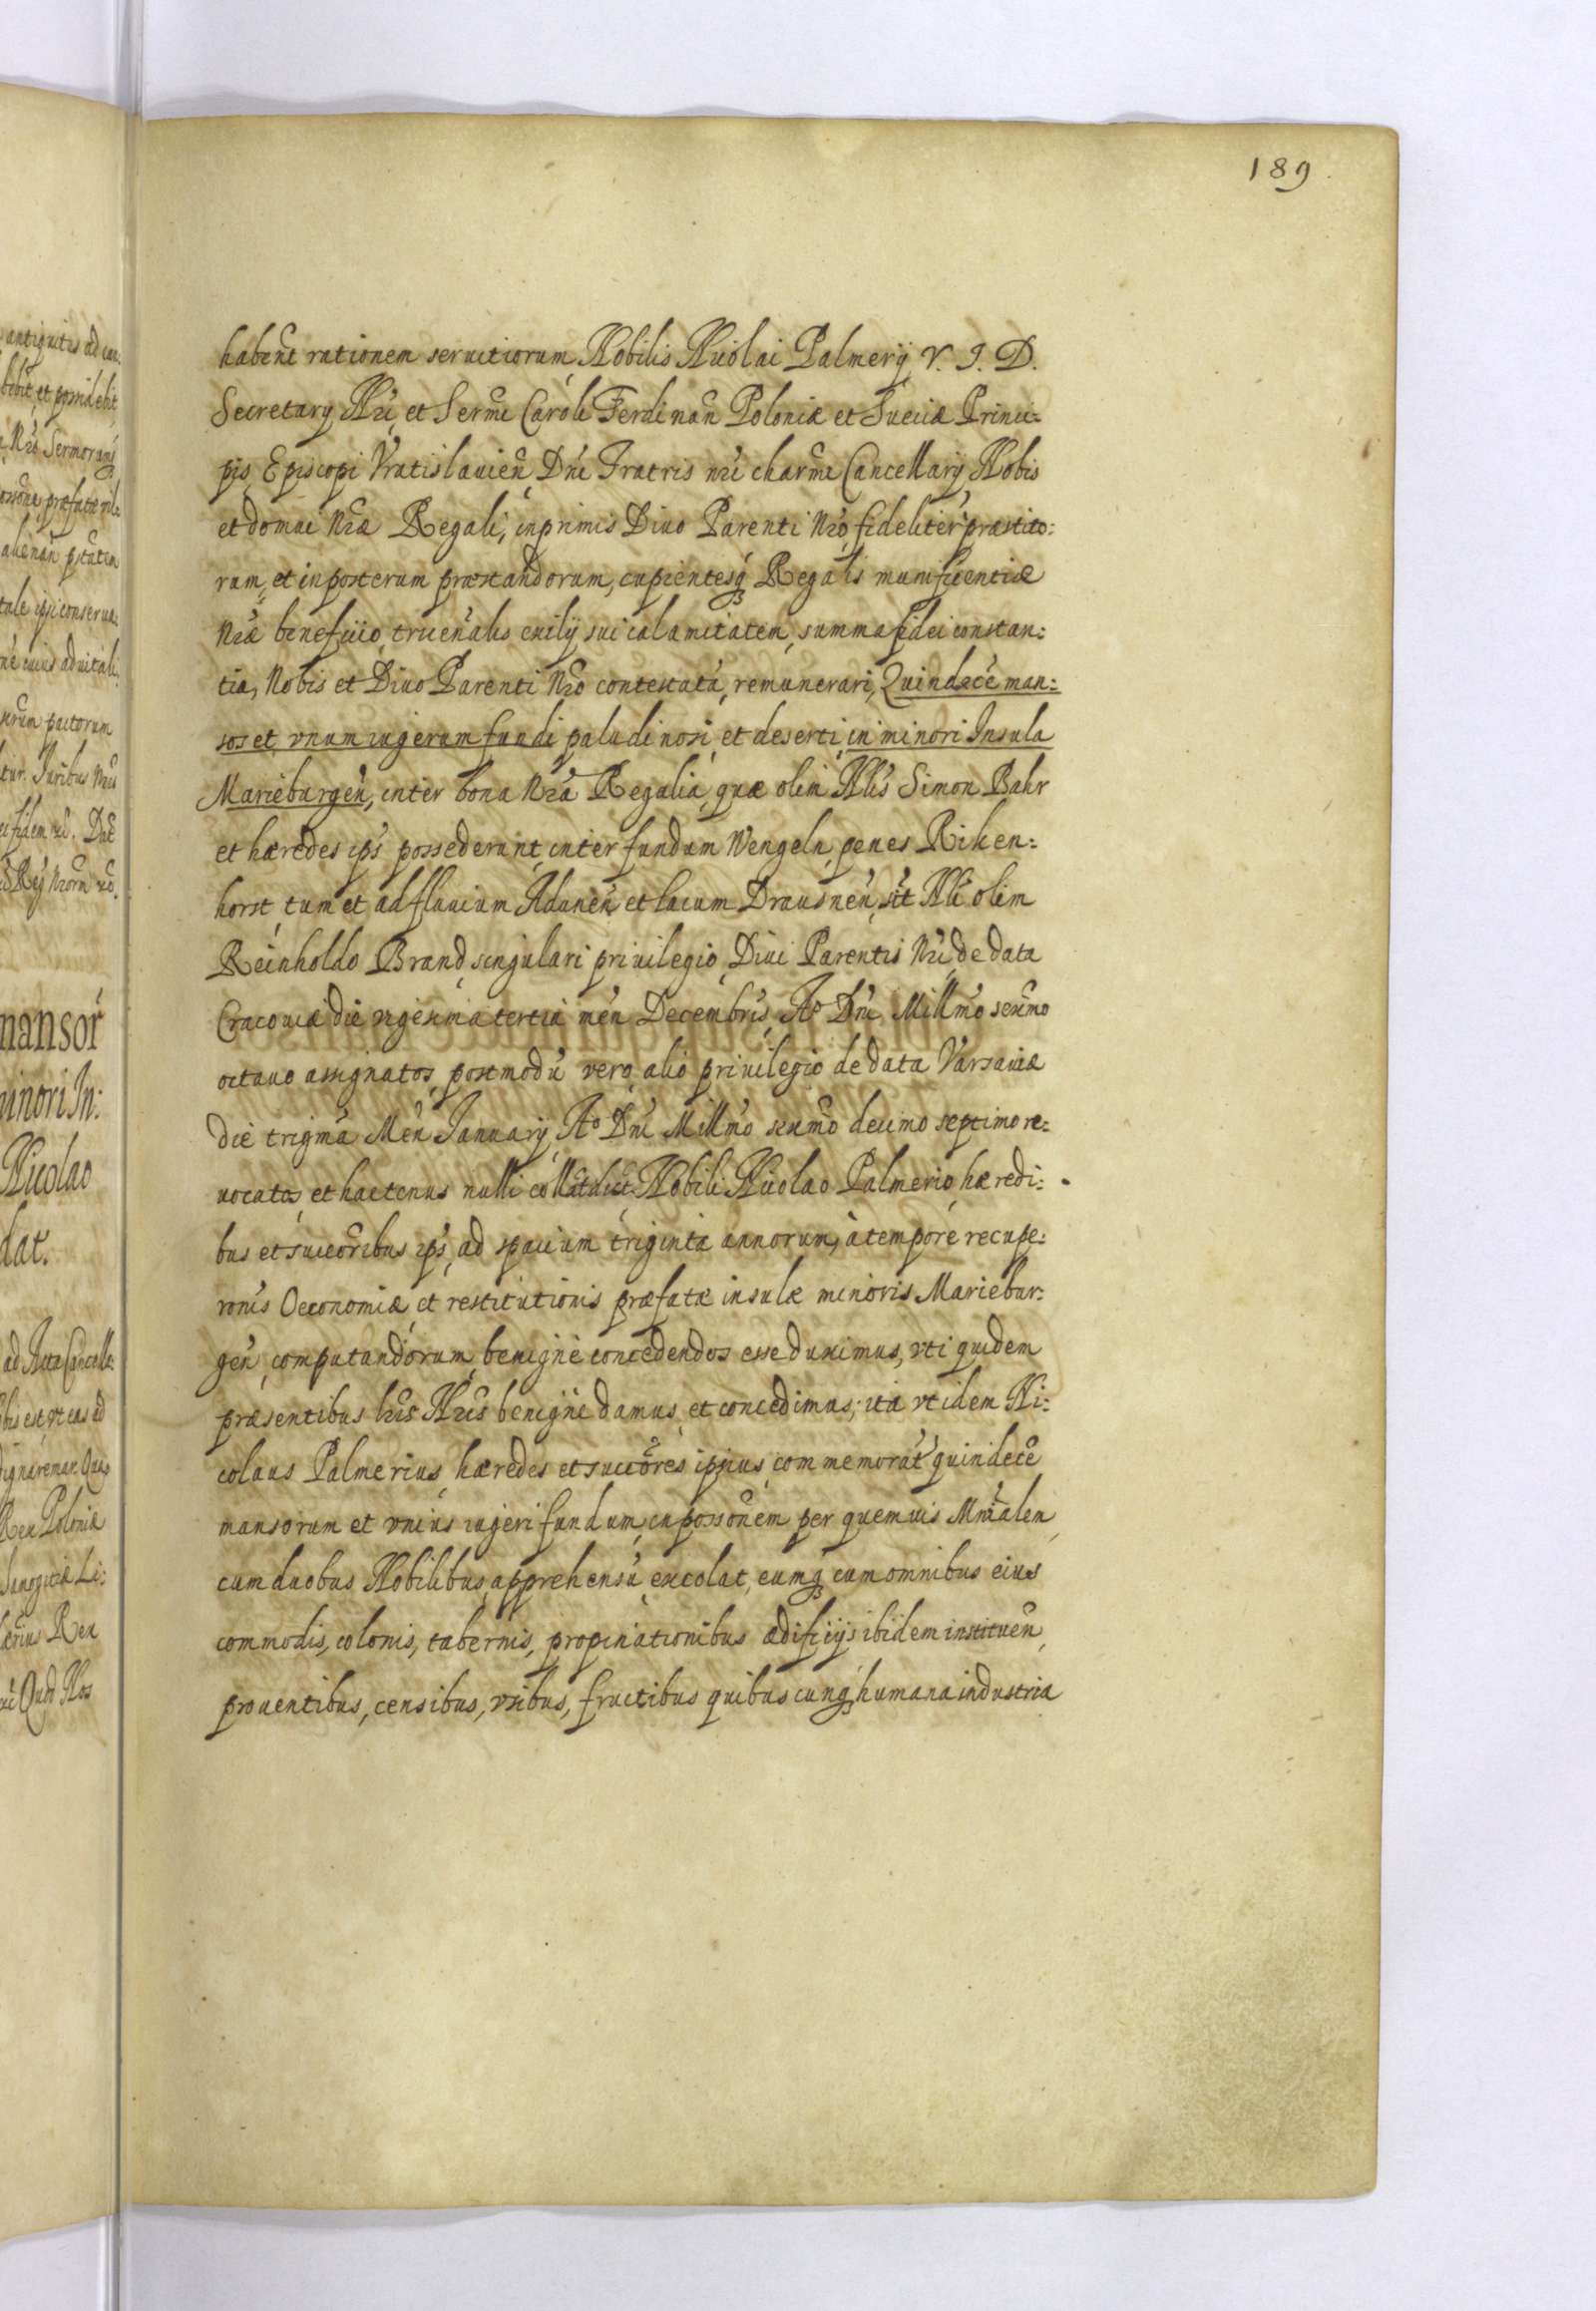 189
habeñt rationem seruitiorum Nobilis Nicolai Palmerij V. I. D.
Secretarij Nri, et Sermi Caroli Ferdinan Poloniæ et Sueciæ Princi:
pis Episcopi Vratislauien, Dni Fratris nri charmi Cancellarij Nobis
et domui Nræ Regali, inprimis Diuo Parenti Nro fideliter præstito:
rum, et inposterum præstandorum, cupientesq Regalis munificentiæ
Nræ beneficio, tricenalis exilij sui calamitatem, summa fidei constan:
tia, Nobis et Diuo Parenti Nro contestatâ, remunerari, Quindecē man:
sos et vnum iugerum fundi paludinosi, et deserti, in minori Insula
Marieburgen, inter bona Nra Regalia, quæ olim Nlis Simon Bahr
et hæredes ips possederunt, inter fundum Wengeln, penes Riken:
horst, tum et ad fluuium Adunen et lacum Drausnen, sit Nli olim
Reinholdo Brand, singulari priuilegio Diui Parentis Nri, de data
Cracouiæ die vigesima tertia men Decembris, Aº Dni Millmo sexmo
octauo assignatos, postmodū vero alio priuilegio de data Varsauiæ
die trigma Men Januarij Aº Dni Millmo sexmo decimo septimo re:
uocatos, et hactenus nulli Nobili Nicolao Palmerio, hæredi:
bus et succoribus ips, ad spacium triginta annorum, à tempore recupe:
ronis Oeconomiæ, et restitutionis præfatæ insulæ minoris Mariebur:
gen, computandorum, benignè concedendos esse duximus, vti quidem
præsentibus lris Nris benignè damus, et concedimus; ita vt idem Ni:
colaus Palmerius, hæredes et succores ipsius, commemorat quindecē
mansorum et vnius iugeri fundum, in possonem per quemuis Mnrialen
cum duobus Nobilibus, apprehensū, excolat, eumq cum omnibus eius
commodis, colonis, tabernis, propinationibus ædificijs ibidem instituen,
prouentibus, censibus, vsibus, fructibus quibuscunq humana industria